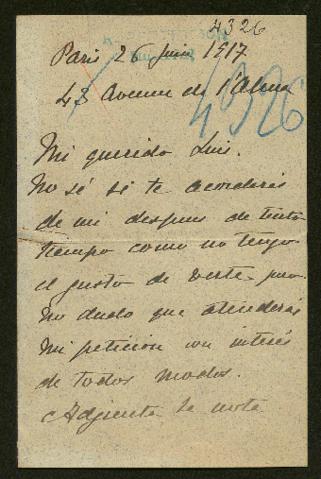 4326
Paris 26 Juin 1917
43 Avenue de l'Alma
4326
Mi querido Luis.
No sé si te acordarás
de mi despues de tanto
tiempo como no tengo
el gusto de verte, pero
no dudo que atenderás
mi peticion con interés
de todos modos.
Adjunta la nota